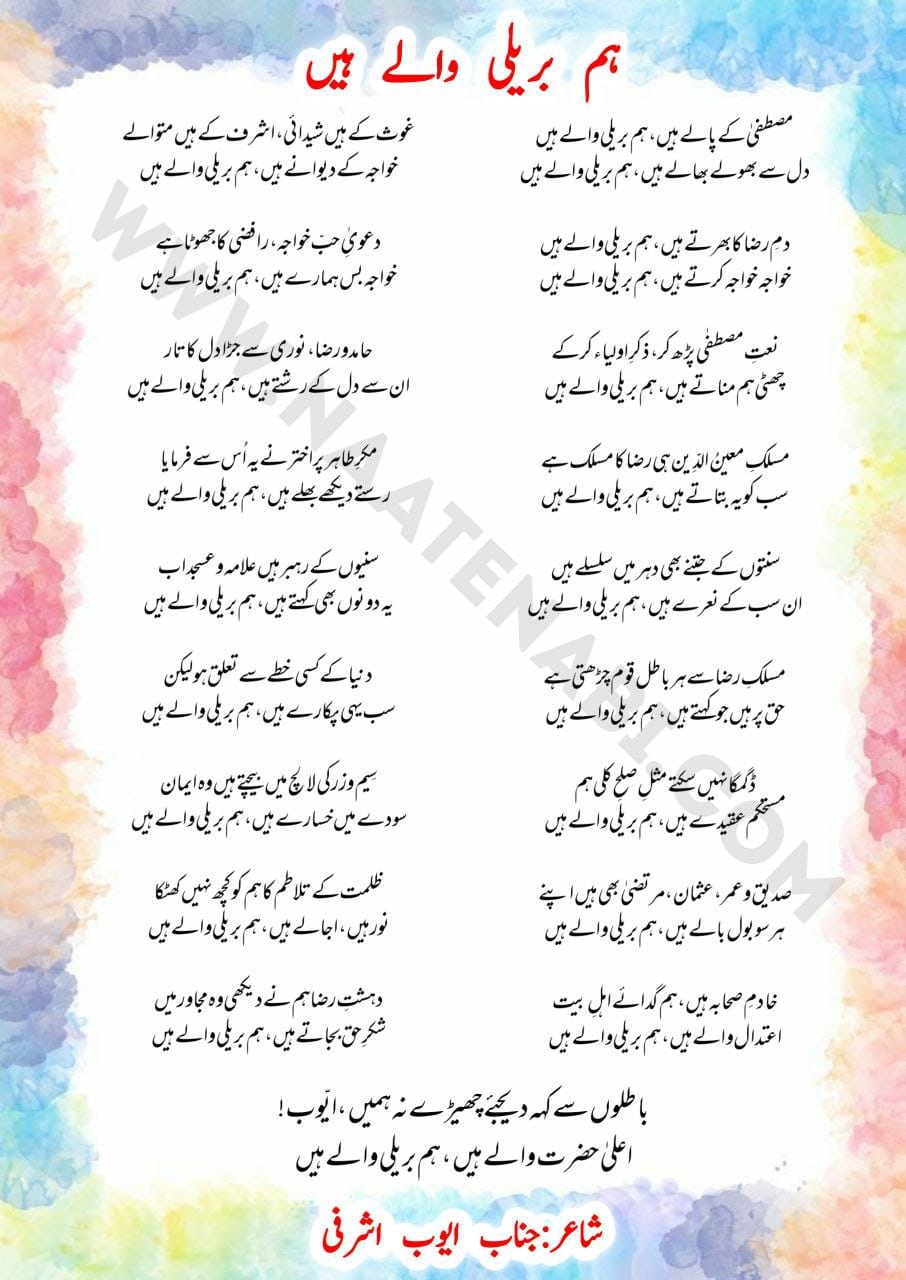 ہم بریلی والے ہیں
مصطفیٰ کے پالے ہیں، ہم بریلی والے ہیں
دل سے بھولے بھالے ہیں، ہم بریلی والے ہیں
دم رضا کا بھرتے ہیں، ہم بریلی والے ہیں
خواجہ خواجہ کرتے ہیں، ہم بریلی والے ہیں
نعتِ مصطفٰی پڑھ کر، ذکرِ اولیاء کر کے
چھٹی ہم مناتے ہیں، ہم بریلی والے ہیں
مسلکِ معینُ الدِّین ہی رضا کا مسلک ہے
سب کو یہ بتاتے ہیں، ہم بریلی والے ہیں
سنتوں کے جتنے بھی دہر میں سلسلے ہیں
ان سب کے نعرے ہیں، ہم بریلی والے ہیں
مسلکِ رضا سے ہر باطل قوم چڑھتی ہے
حق پر ہیں جو کہتے ہیں، ہم بریلی والے ہیں
ڈگمگا نہیں سکتے مثلِ صلحِ کلی ہم
مستحکم عقیدے ہیں، ہم بریلی والے ہیں
صدیق و عمر، عثمان، مرتضیٰ بھی ہیں اپنے
ہر سو بول بالے ہیں، ہم بریلی والے ہیں
خادمِ صحابہ ہیں، ہم گدائے اہلِ بیت
اعتدال والے ہیں، ہم بریلی والے ہیں
غوث کے ہیں شیدائی، اشرف کے ہیں متوالے
خواجہ کے دیوانے ہیں، ہم بریلی والے ہیں
دعویٰ حبِّ خواجہ، رافضی کا جھوٹا ہے
خواجہ بس ہمارے ہیں، ہم بریلی والے ہیں
حامد و رضا، نوری سے جڑا دل کا تار
ان سے دل کے رشتے ہیں، ہم بریلی والے ہیں
مکرِ طاہر پر اختر نے یہ اُس سے فرمایا
رستے دیکھے بھلے ہیں، ہم بریلی والے ہیں
سنیوں کے رہبر ہیں علامہ و عسجد اب
یہ دونوں بھی کہتے ہیں، ہم بریلی والے ہیں
دنیا کے کسی خطے سے تعلق ہو لیکن
سب یہی پکارے ہیں، ہم بریلی والے ہیں
سِیم و زر کی لالچ میں بیچتے ہیں وہ ایمان
سودے میں خسارے ہیں، ہم بریلی والے ہیں
ظلمت کے تلاطم کا ہم کو کچھ نہیں کھٹکا
نور ہیں، اجالے ہیں، ہم بریلی والے ہیں
دہشتِ رضا ہم نے دیکھی وہ مجاور میں
شکرِ حق بجاتے ہیں، ہم بریلی والے ہیں
باطلوں سے کہہ دیجئے چھیڑے نہ ہمیں، ایّوب!
اعلیٰ حضرت والے ہیں، ہم بریلی والے ہیں
شاعر: جناب ایوب اشرفی
WWW.NAATENABI.COM